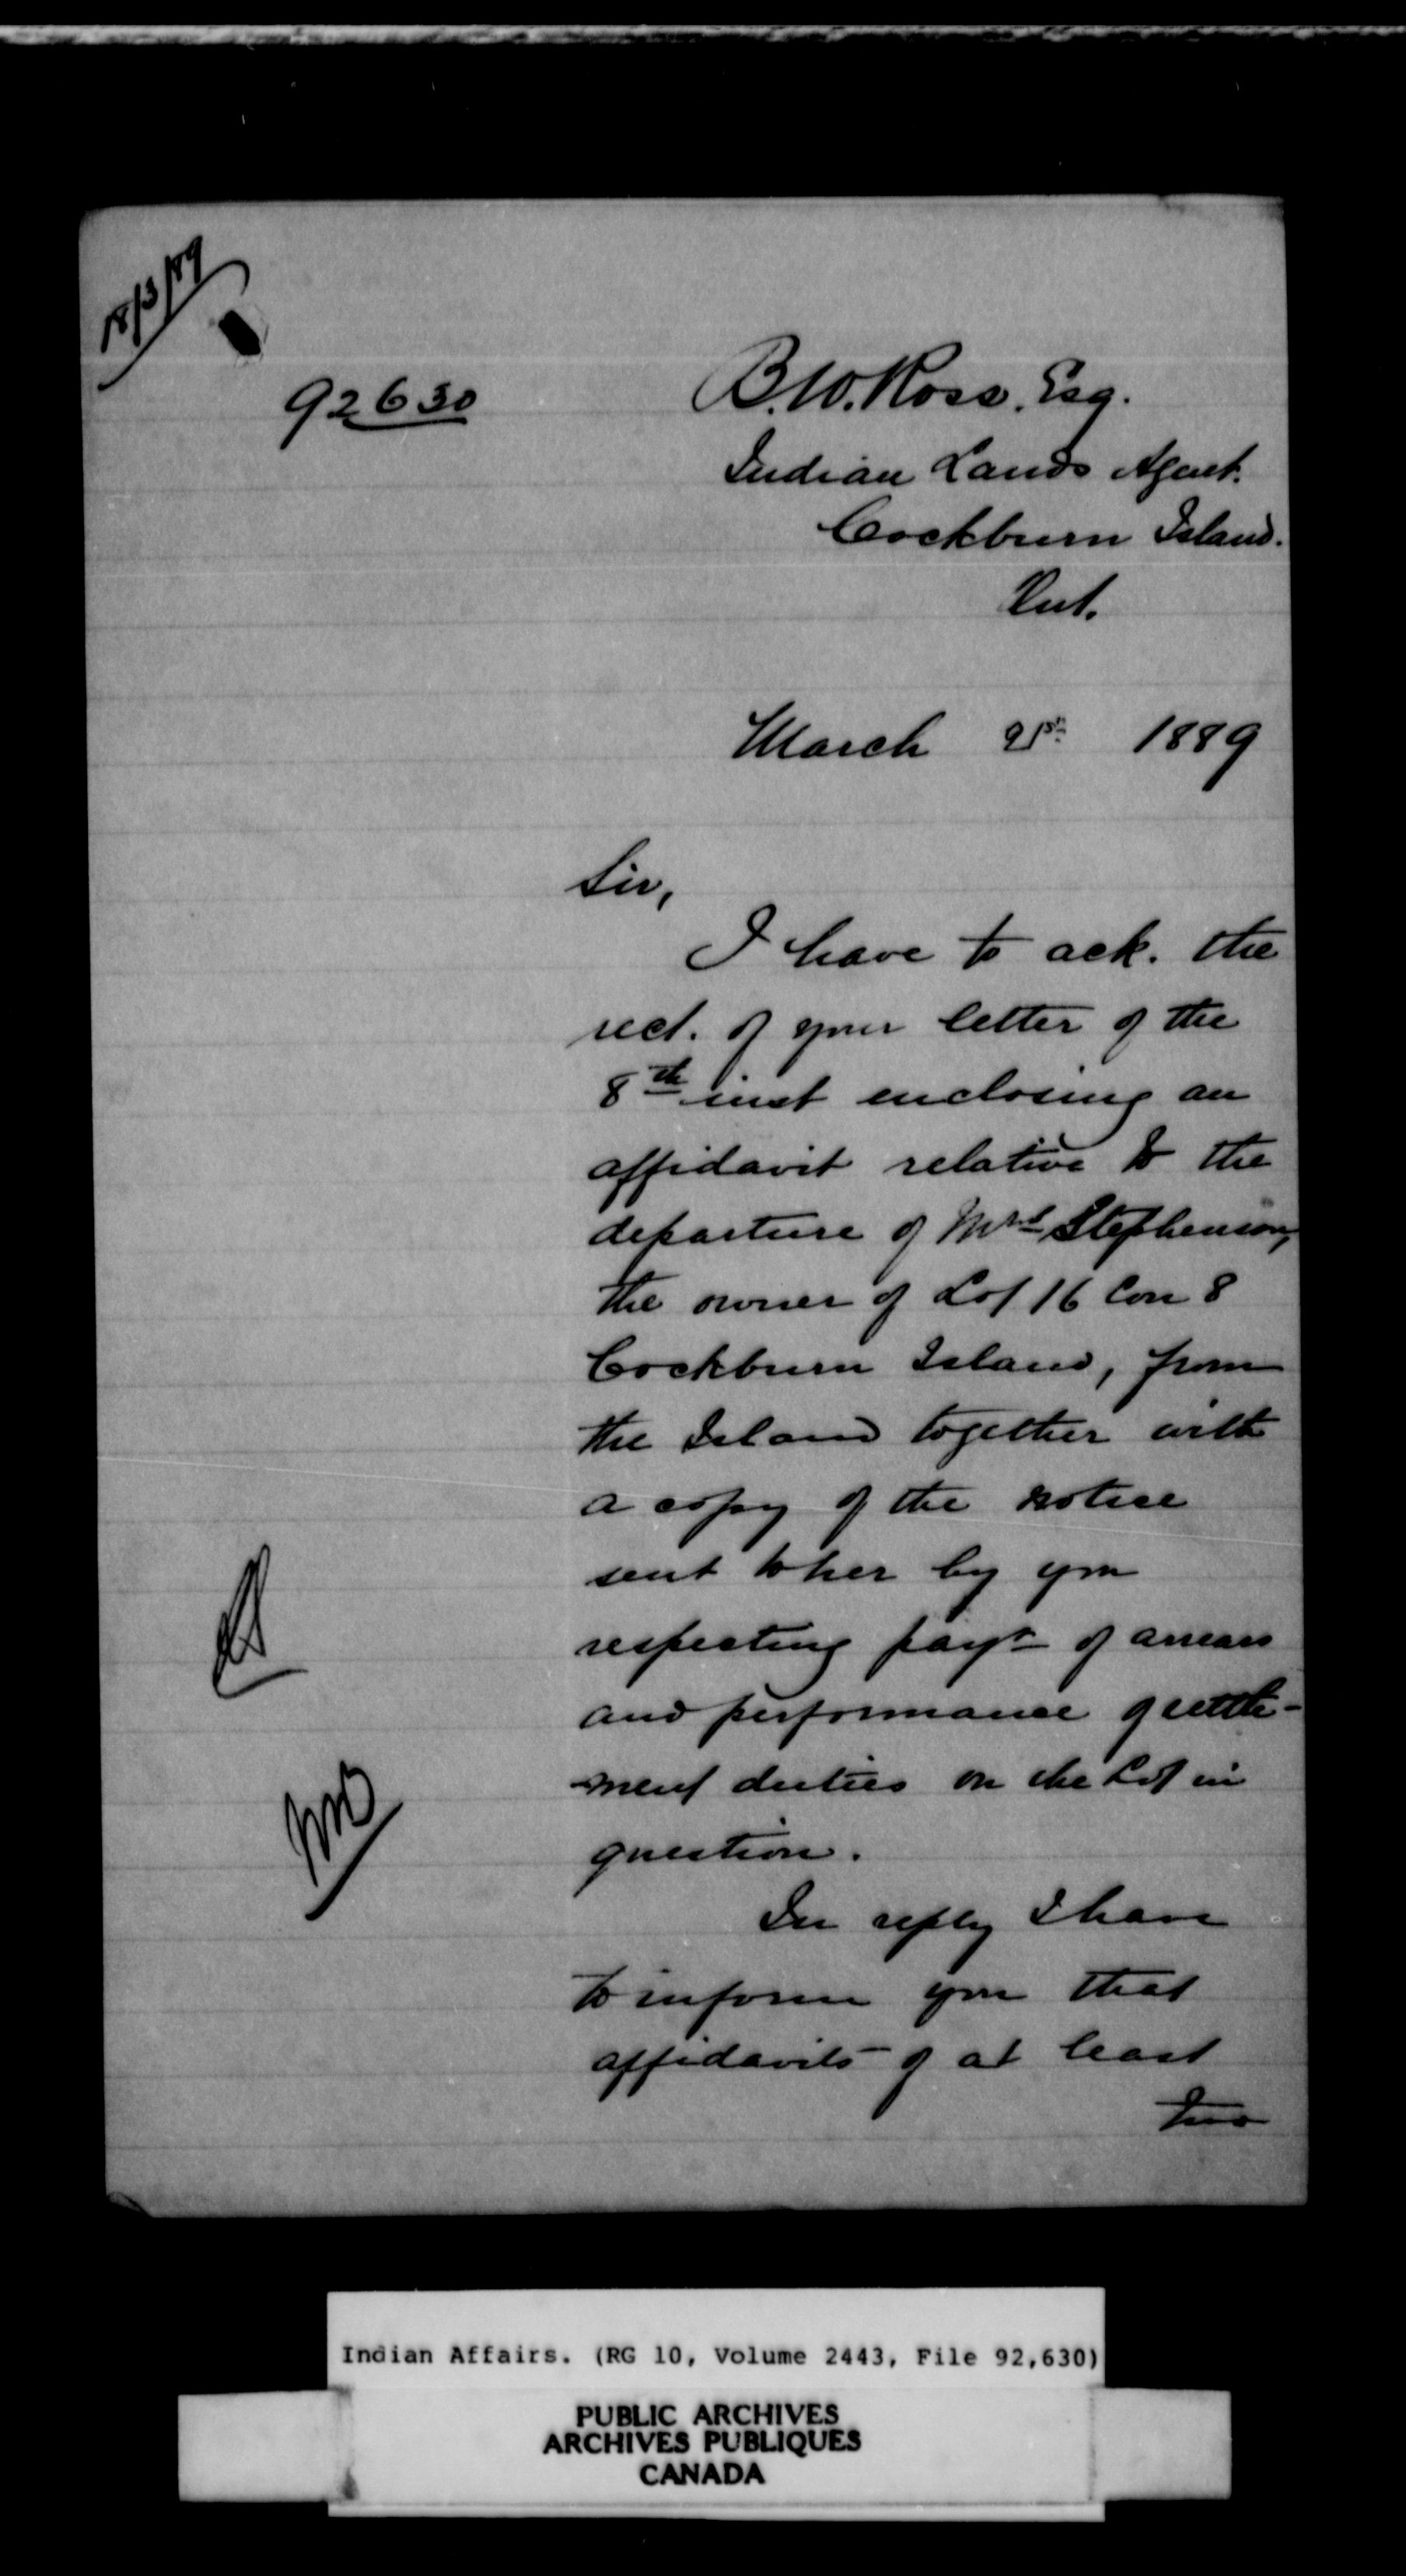 18/3/89
92630
B.W. Ross. Esq.
Indian Lands Agent.
Cockburn Island.
Ont.
March 21st 1889
Sir,
I have to ack. the
rect. of your letter of the
8th inst enclosing an
affidavit relative to the
departure of Mrs Stephenson,
the owner of Lot 16 Con 8
Cockburn Island, from
the Island together with
a copy of the notice
sent to her by you
respecting payt of arrears
and performance of settle-
-ment duties on the Lot in
question.
In reply I have
to inform you that
affidavits of at least
two
Indian Affairs. (RG 10, Volume 2443, File 92,630)
PUBLIC ARCHIVES
ARCHIVES PUBLIQUES
CANADA